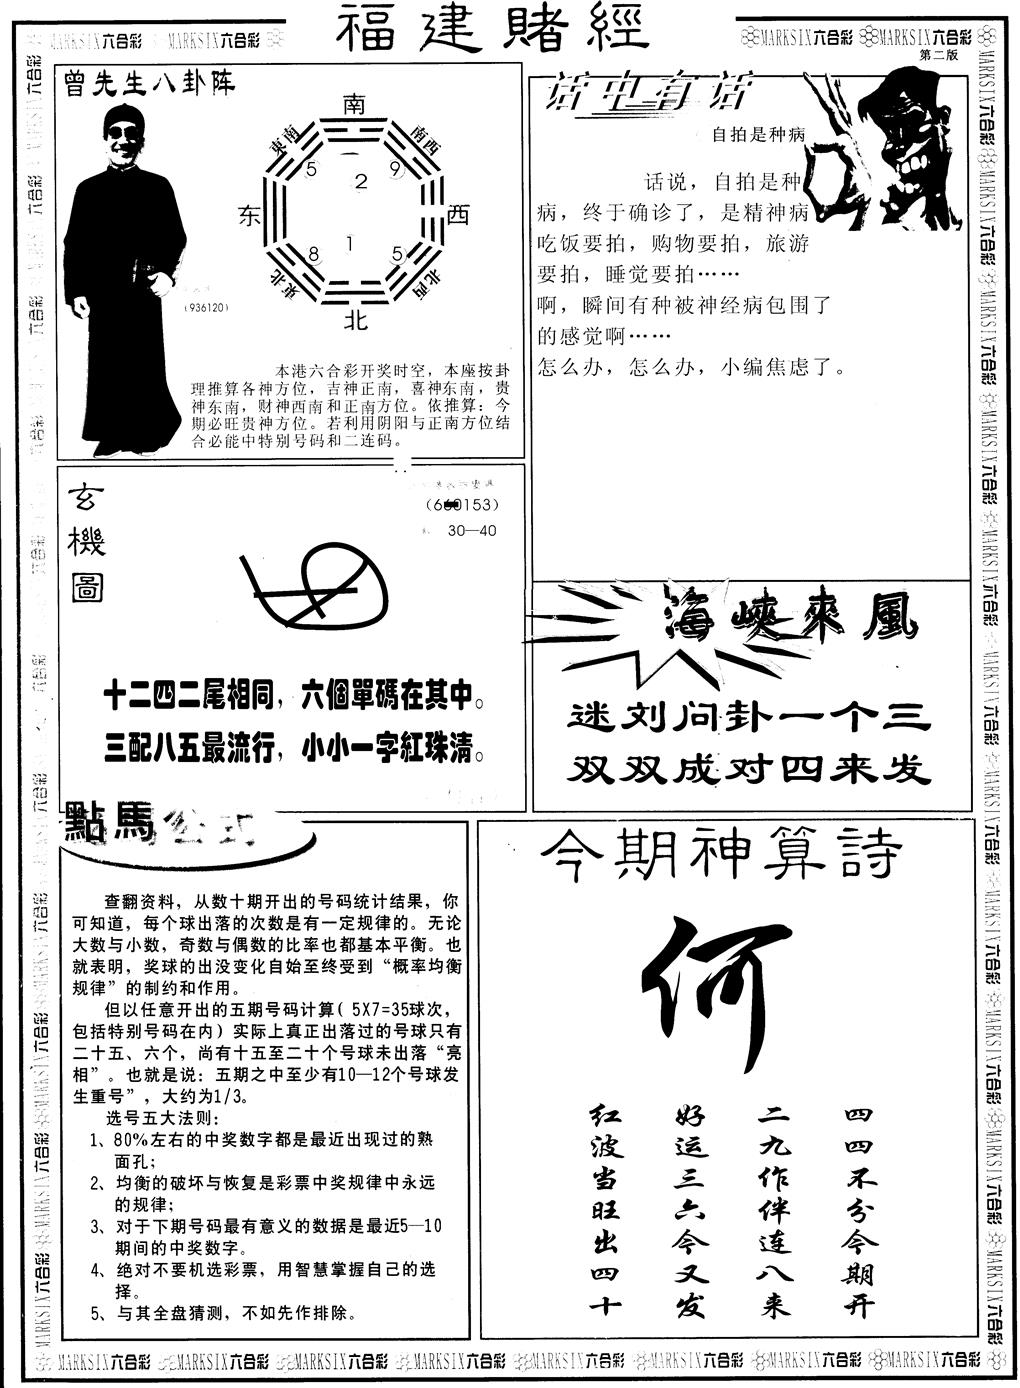 福建賭經
MARKSIX六合彩 MARKSIX六合彩
MARKSIX六合彩 MARKSIX六合彩
第二版
曾先生八卦阵
南
東南
南西
5
2
9
东
西
8
1
5
東北
北西
北
(936120)
本港六合彩开奖时空，本座按卦
理推算各神方位，吉神正南，喜神东南，贵
神东南，财神西南和正南方位。依推算：今
期必旺贵神方位。若利用阴阳与正南方位结
合必能中特别号码和二连码。
话中有话
自拍是种病
话说，自拍是种
病，终于确诊了，是精神病
吃饭要拍，购物要拍，旅游
要拍，睡觉要拍……
啊，瞬间有种被神经病包围了
的感觉啊……
怎么办，怎么办，小编焦虑了。
玄
機
圖
30—40
十二四二尾相同，六個單碼在其中。
三配八五最流行，小小一字紅珠清。
海峽來風
迷刘问卦一个三
双双成对四来发
點馬公式
查翻资料，从数十期开出的号码统计结果，你
可知道，每个球出落的次数是有一定规律的。无论
大数与小数，奇数与偶数的比率也都基本平衡。也
就表明，奖球的出没变化自始至终受到“概率均衡
规律”的制约和作用。
但以任意开出的五期号码计算( 5X7=35球次，
包括特别号码在内) 实际上真正出落过的号球只有
二十五、六个，尚有十五至二十个号球未出落“亮
相”。也就是说：五期之中至少有10—12个号球发
生重号”，大约为1/3。
选号五大法则：
1、80%左右的中奖数字都是最近出现过的熟
面孔；
2、均衡的破坏与恢复是彩票中奖规律中永远
的规律；
3、对于下期号码最有意义的数据是最近5—10
期间的中奖数字。
4、绝对不要机选彩票，用智慧掌握自己的选
择。
5、与其全盘猜测，不如先作排除。
今期神算詩
何
四四不分今期开
二九作伴连八来
好运三六今又发
红波当旺出四十
MARKSIX六合彩 MARKSIX六合彩 MARKSIX六合彩 MARKSIX六合彩 MARKSIX六合彩 MARKSIX六合彩 MARKSIX六合彩 MARKSIX六合彩